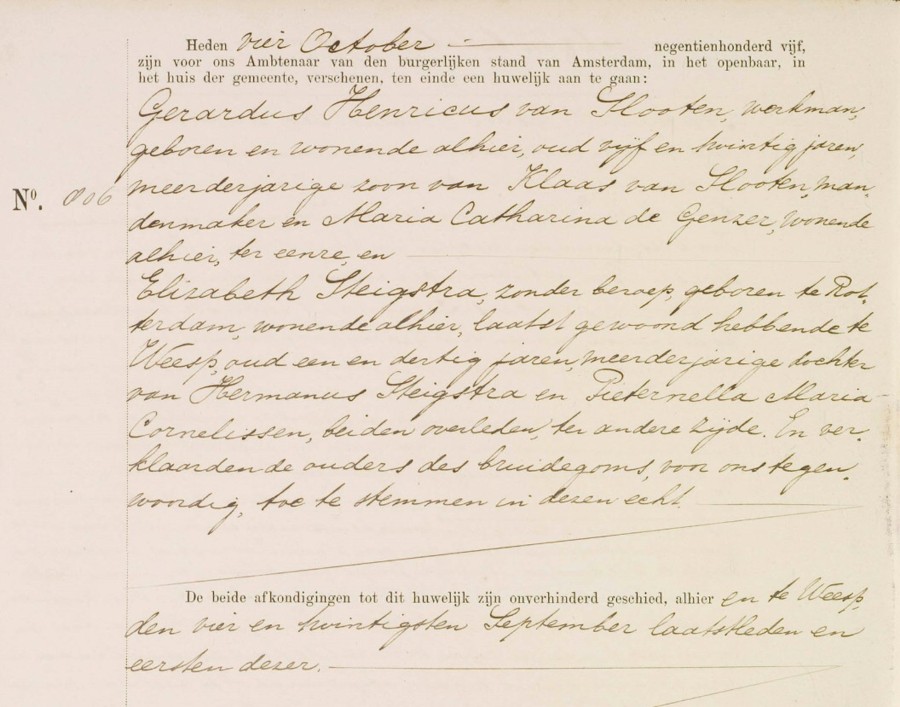 Heden vier October negentienhonderd vijf,
zijn voor ons Ambtenaar van den burgerlijken stand van Amsterdam, in het openbaar, in
het huis der gemeente, verschenen, ten einde een huwelijk aan te gaan:
Gerardus Henricus van Slooten, werkman,
geboren en wonende alhier, oud vijf en twintig jaren,
No. 806 meerderjarige zoon van Klaas van Slooten, man-
denmaker en Maria Catharina de Genzer, wonende
alhier, ter eenre, en
Elizabeth Steigstra, zonder beroep, geboren te Rot-
terdam, wonende alhier, laatst gewoond hebbende te
Weesp, oud een en dertig jaren, meerderjarige dochter
van Hermanus Steigstra en Pieternella Maria
Cornelissen, beiden overleden, ter andere zijde. En ver-
klaarden de ouders des bruidegoms, voor ons tegen-
woordig, toe te stemmen in dezen echt.
De beide afkondigingen tot dit huwelijk zijn onverhinderd geschied, alhier en te Weesp,
den vier en twintigsten September laatstleden en
eersten dezer.